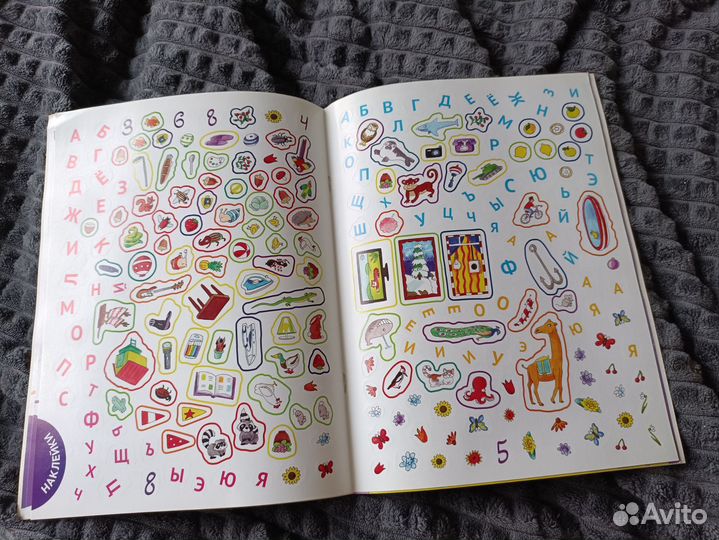 А Б 3 6 8 Ч
В Г
Д Ё З
Ж Е
И К
Й Л
Б
М Н
О
П Р
С Т
Ф Ъ
У Щ Ъ
Х Ц 8 Ы Э Ю Я
Ч
НАКЛЕЙКИ
А Б В Г Д Е Ё Ж З И
К Л М Н
О Р Т
П С Ю Ь Э
Щ Х Ъ Ы
Ш У Ц Ч Я Й
Ф А
Е Е О О
Е И И У Э Ю Я
5
Avito